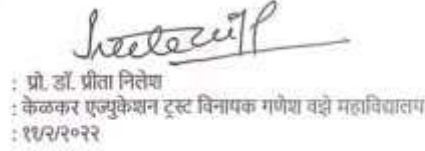 : प्रो. डॉ. प्रीता निलेश
: केळकर एज्युकेशन ट्रस्ट विनायक गणेश वझे महाविद्यालय
: ११/२/२०२२